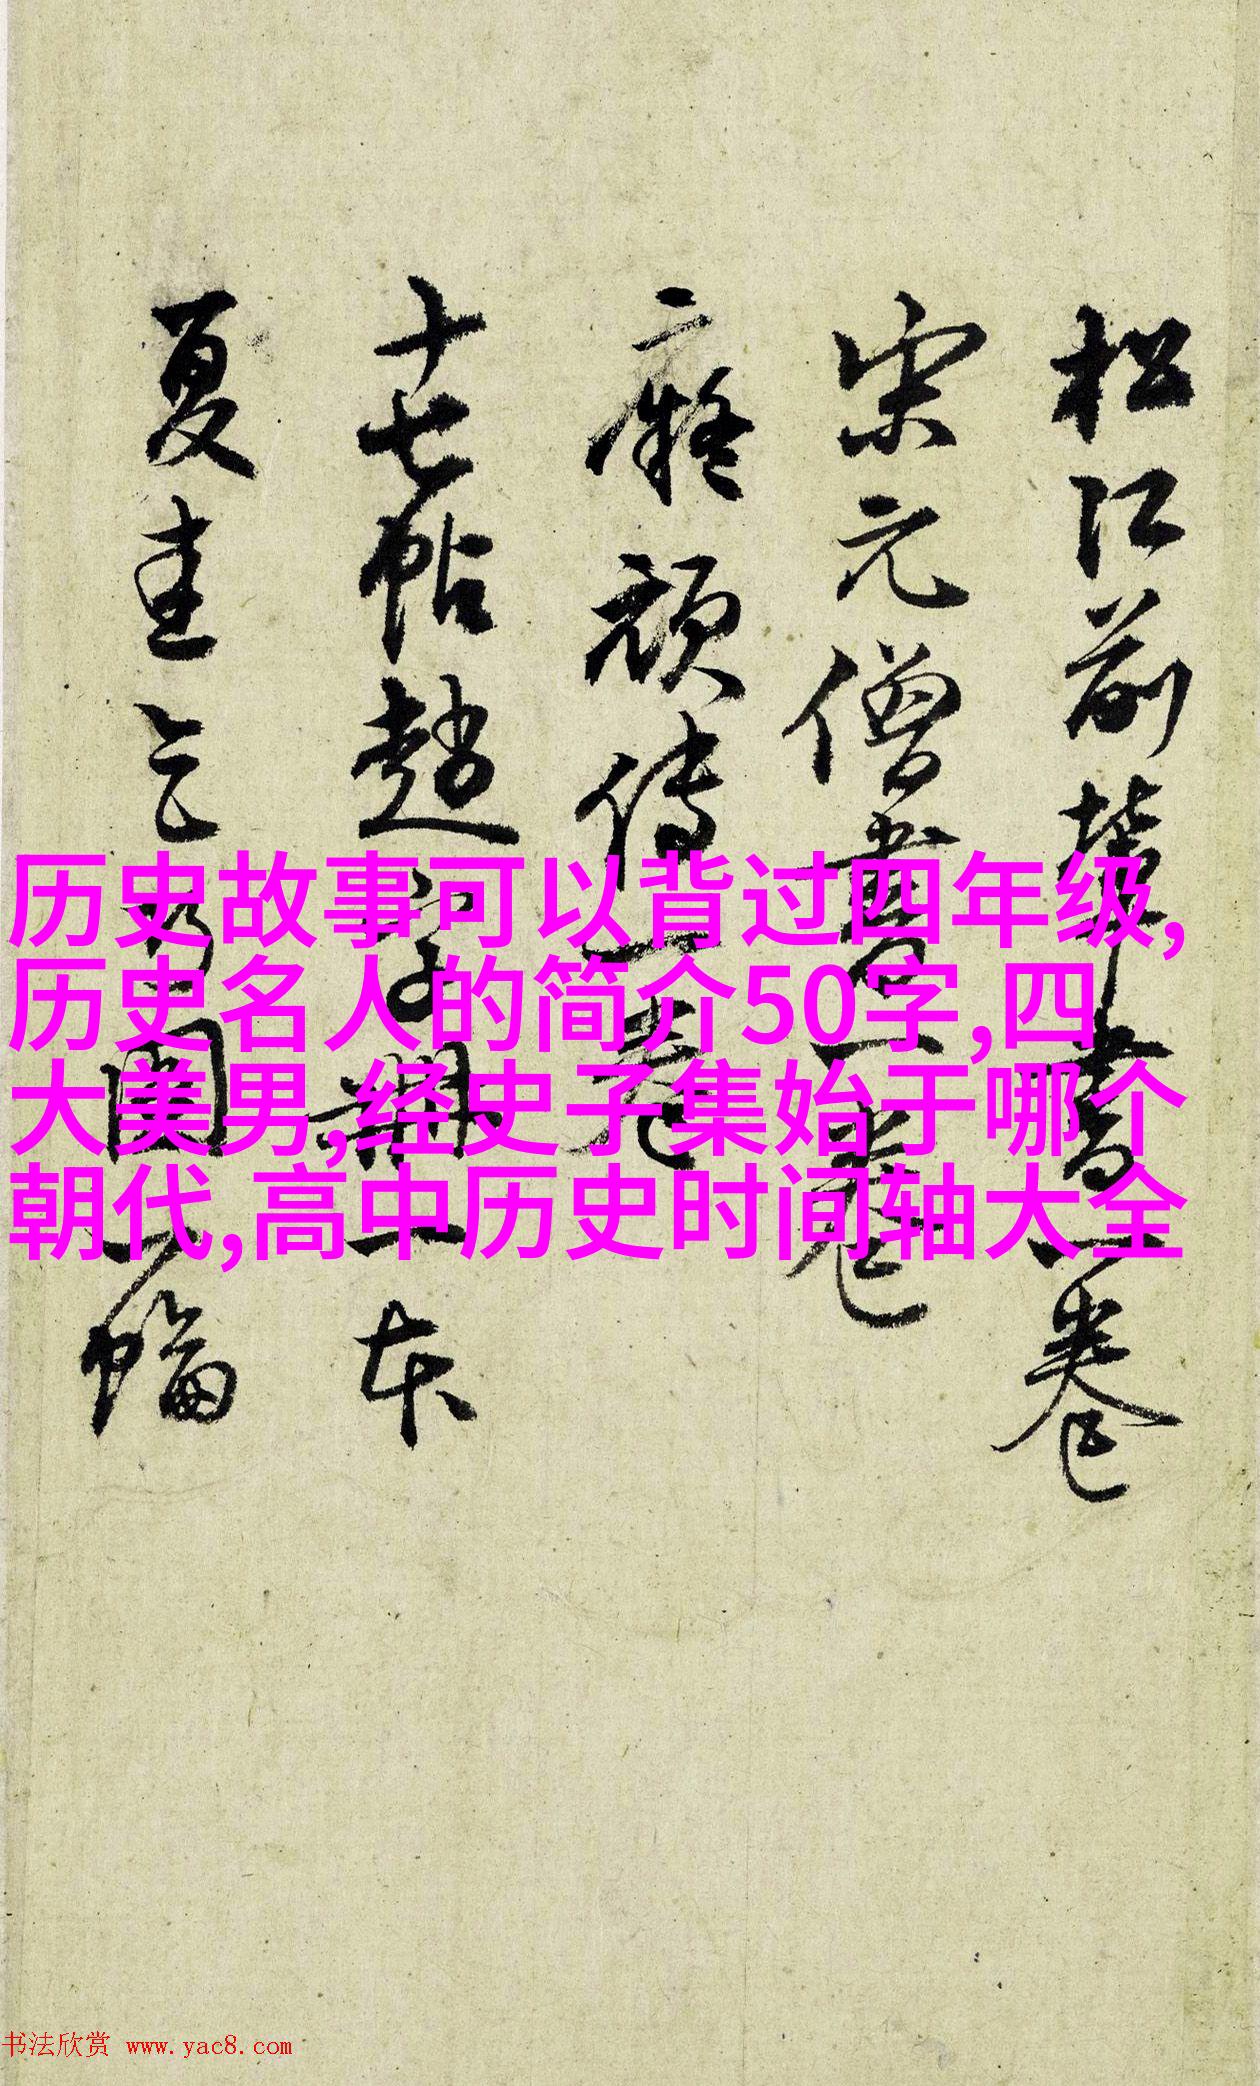 松江前辈書一卷
宋元僧書一卷
二癡頑傳一卷
十七帖趙一本
夏圭一幅
历史故事可以背过四年级,
历史名人的简介50字,四
大美男,经史子集始于哪个
朝代,高中历史时间轴大全
书法欣赏 www.yac8.com